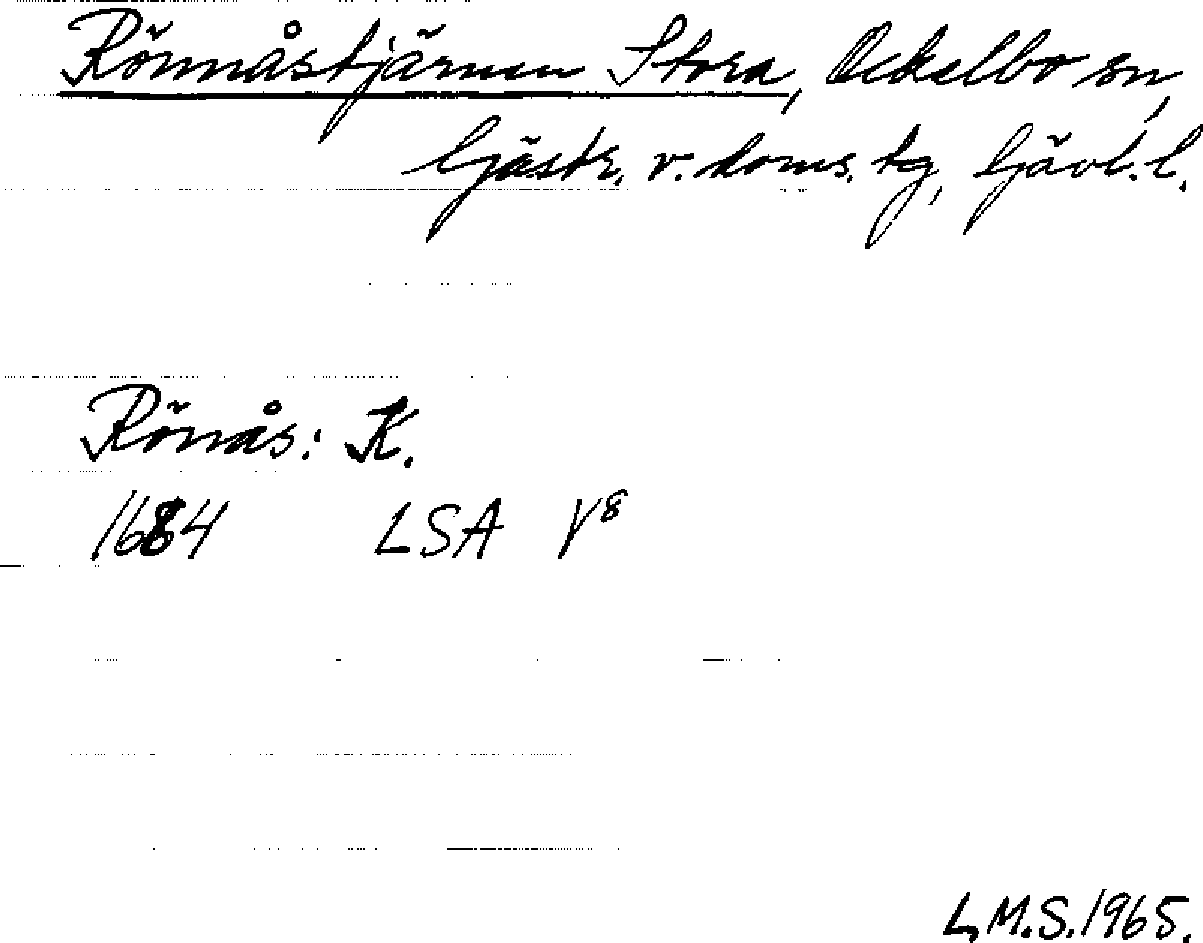 Rönnåstjärnen Stora, Ockelbo sn,
Gästr. v. doms. tg, Gävl. l.
Rönås: K.
1684 LSA V⁸
L.M.S. 1965.